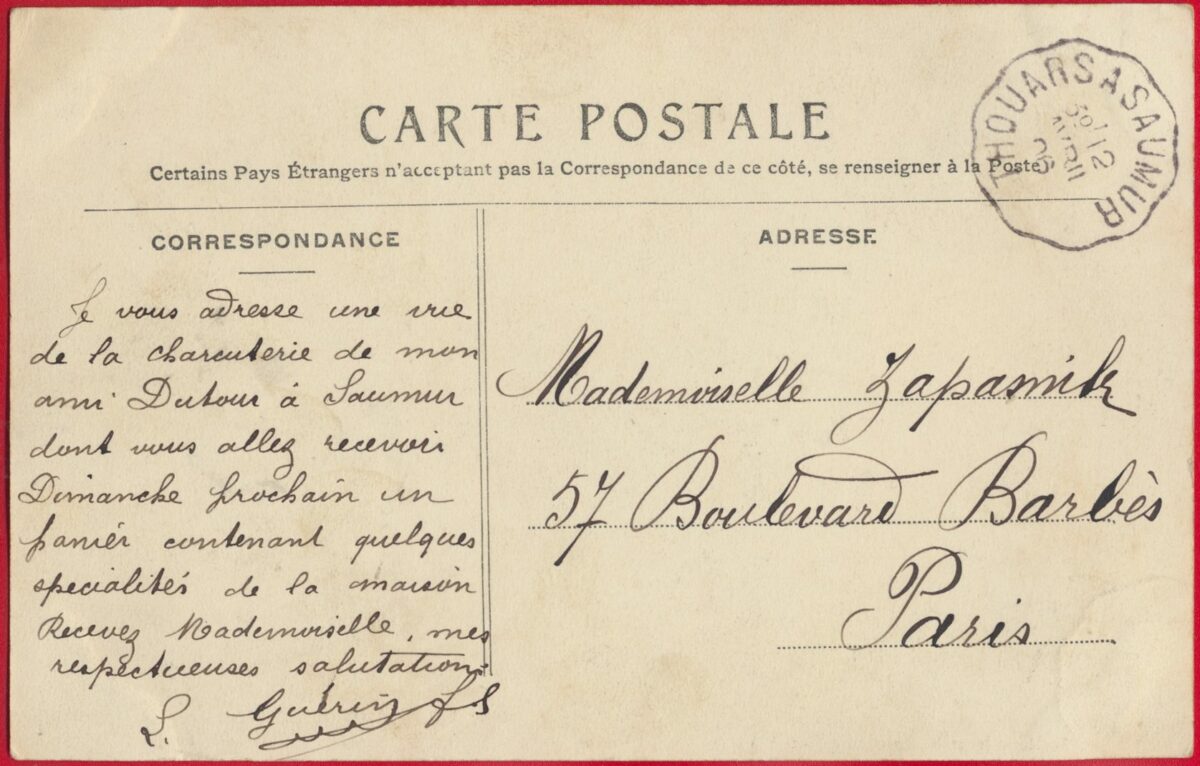 CARTE POSTALE
Certains Pays Étrangers n'acceptant pas la Correspondance de ce côté, se renseigner à la Poste)
THOUARS A SAUMUR
12
AVRIL
CORRESPONDANCE
Je vous adresse une vue
de la charcuterie de mon
ami Dutour à Saumur
dont vous allez recevoir
Dimanche prochain un
panier contenant quelques
specialités de la maison
Recevez Mademoiselle, mes
respectueuses salutations
L. Guérin
ADRESSE
Mademoiselle Zapasnik
57 Boulevard Barbès
Paris